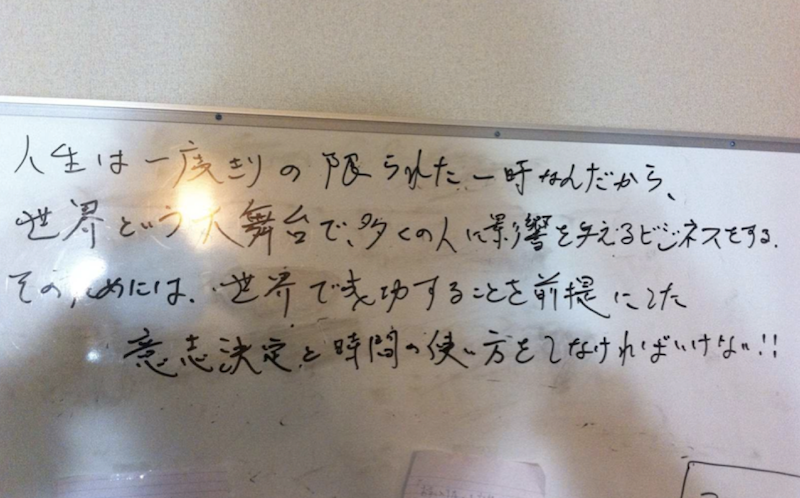 人生は一度きりの限られた一時なんだから、
世界という大舞台で、多くの人に影響を与えるビジネスをする.
そのためには、世界で成功することを前提にした
意志決定と時間の使い方をしなければいけない!!